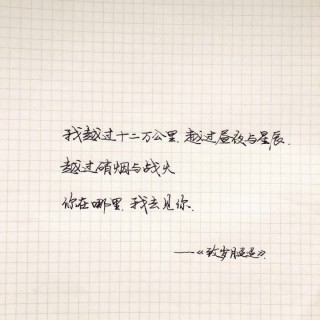 我越过十二万公里，越过昼夜与星辰，
越过硝烟与战火
你在哪里，我去见你．
——《致岁月迢迢》．